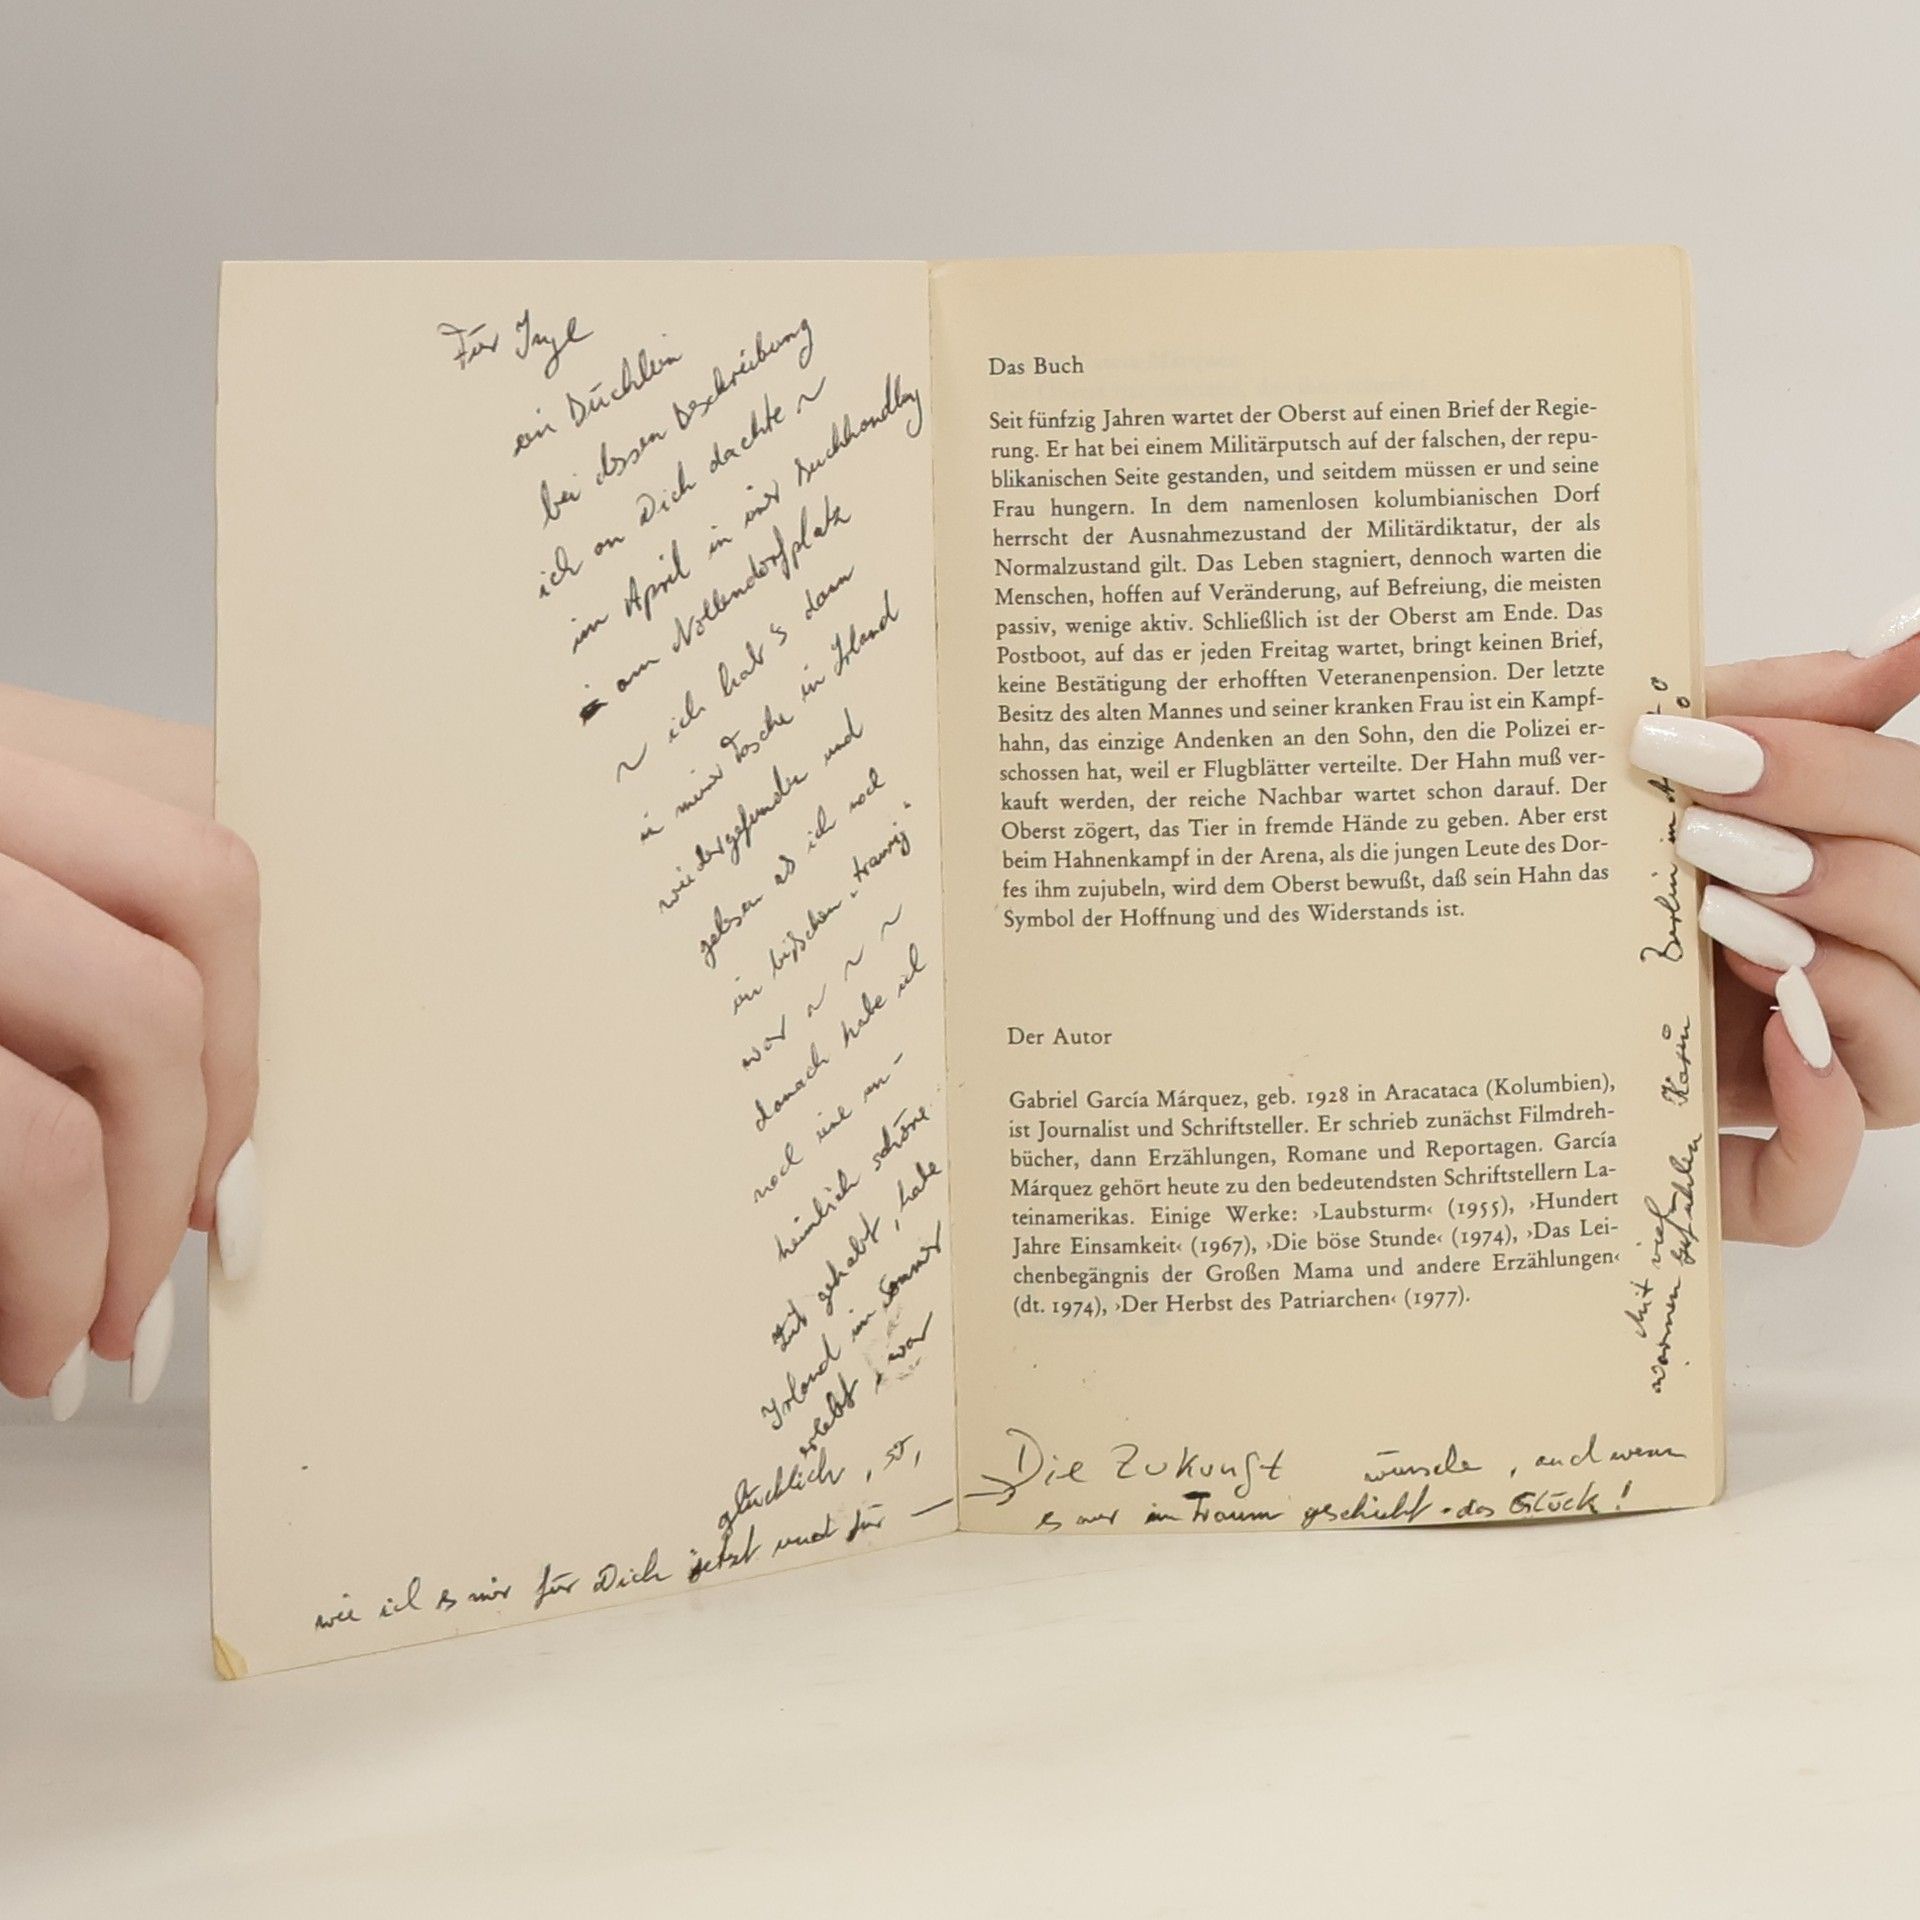 Für Inge
ein Büchlein
bei dessen Beschreibung
ich an Dich dachte ~
im April in einer Buchhandlg
am Nollendorfplatz
~ ich hab's dann
in meiner Tasche in Irland
wiedergefunden und
gelesen als ich noch
ein bißchen "traurig"
war ~ ~ ~
danach habe ich
noch eine un-
heimlich schöne
Zeit gehabt, habe
Irland im Sommer
erlebt, war
glücklich, so,
wie ich es mir für Dich jetzt und für —
→ Die Zukunft wünsche, auch wenn
es nur im Traum geschieht - das Glück!
Mit vielen
warmen Gefühlen Karin Berlin im
Das Buch
Seit fünfzig Jahren wartet der Oberst auf einen Brief der Regie-
rung. Er hat bei einem Militärputsch auf der falschen, der repu-
blikanischen Seite gestanden, und seitdem müssen er und seine
Frau hungern. In dem namenlosen kolumbianischen Dorf
herrscht der Ausnahmezustand der Militärdiktatur, der als
Normalzustand gilt. Das Leben stagniert, dennoch warten die
Menschen, hoffen auf Veränderung, auf Befreiung, die meisten
passiv, wenige aktiv. Schließlich ist der Oberst am Ende. Das
Postboot, auf das er jeden Freitag wartet, bringt keinen Brief,
keine Bestätigung der erhofften Veteranenpension. Der letzte
Besitz des alten Mannes und seiner kranken Frau ist ein Kampf-
hahn, das einzige Andenken an den Sohn, den die Polizei er-
schossen hat, weil er Flugblätter verteilte. Der Hahn muß ver-
kauft werden, der reiche Nachbar wartet schon darauf. Der
Oberst zögert, das Tier in fremde Hände zu geben. Aber erst
beim Hahnenkampf in der Arena, als die jungen Leute des Dor-
fes ihm zujubeln, wird dem Oberst bewußt, daß sein Hahn das
Symbol der Hoffnung und des Widerstands ist.
Der Autor
Gabriel García Márquez, geb. 1928 in Aracataca (Kolumbien),
ist Journalist und Schriftsteller. Er schrieb zunächst Filmdreh-
bücher, dann Erzählungen, Romane und Reportagen. García
Márquez gehört heute zu den bedeutendsten Schriftstellern La-
teinamerikas. Einige Werke: ›Laubsturm‹ (1955), ›Hundert
Jahre Einsamkeit‹ (1967), ›Die böse Stunde‹ (1974), ›Das Lei-
chenbegängnis der Großen Mama und andere Erzählungen‹
(dt. 1974), ›Der Herbst des Patriarchen‹ (1977).